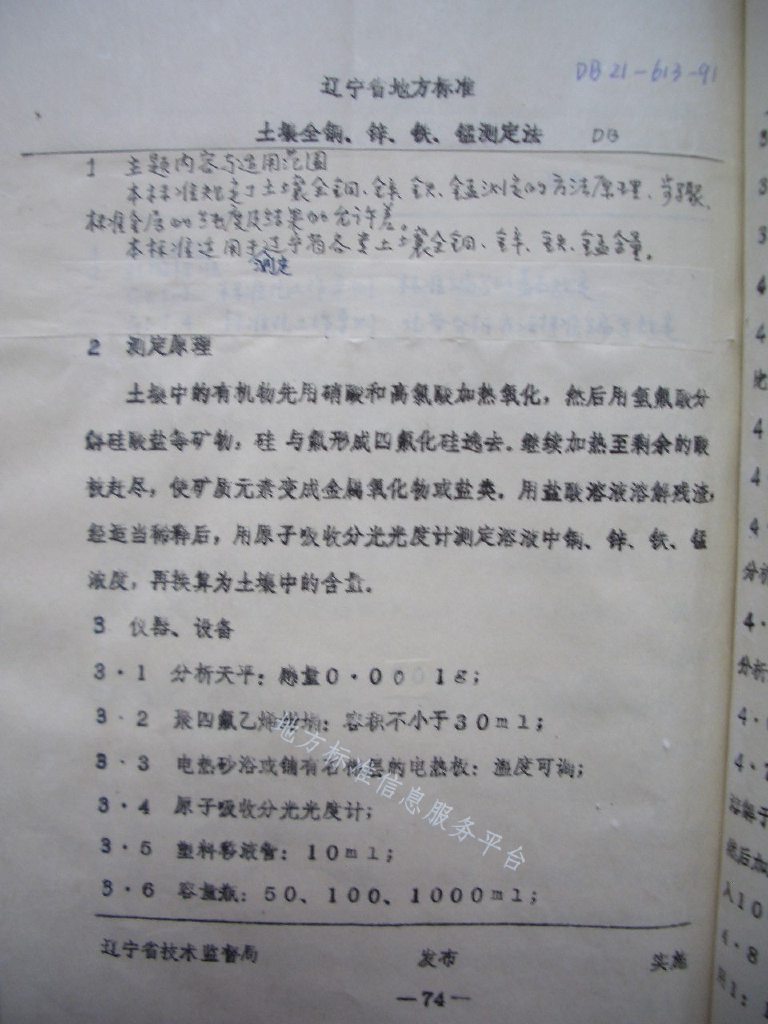 DB 21-613-91
辽宁省地方标准
土壤全铜、锌、铁、锰测定法 DB
1 主题内容与适用范围
本标准规定了土壤全铜、锌、铁、锰测定的方法原理、步骤、
标准金属的纯度及结果的允许差。
本标准适用于辽宁省各类土壤全铜、锌、铁、锰含量。
测定
2 测定原理
土壤中的有机物先用硝酸和高氯酸加热氧化，然后用氢氟酸分
解硅酸盐等矿物，硅与氟形成四氟化硅逸去。继续加热至剩余的酸
被赶尽，使矿质元素变成金属氧化物或盐类。用盐酸溶液溶解残渣，
经适当稀释后，用原子吸收分光光度计测定溶液中铜、锌、铁、锰
浓度，再换算为土壤中的含量。
3 仪器、设备
3·1 分析天平：感量0·0001g；
3·2 聚四氟乙烯坩埚：容积不小于30ml；
3·3 电热砂浴或铺有石棉层的电热板：温度可调；
3·4 原子吸收分光光度计；
3·5 塑料移液管：10ml；
3·6 容量瓶：50、100、1000ml；
地方标准信息服务平台
辽宁省技术监督局 发布 实施
—74—
3
3
3
4
4
比
4
4
4·
分析
4·
分析
4·
4·
溶解于
然后加
入10
4·8